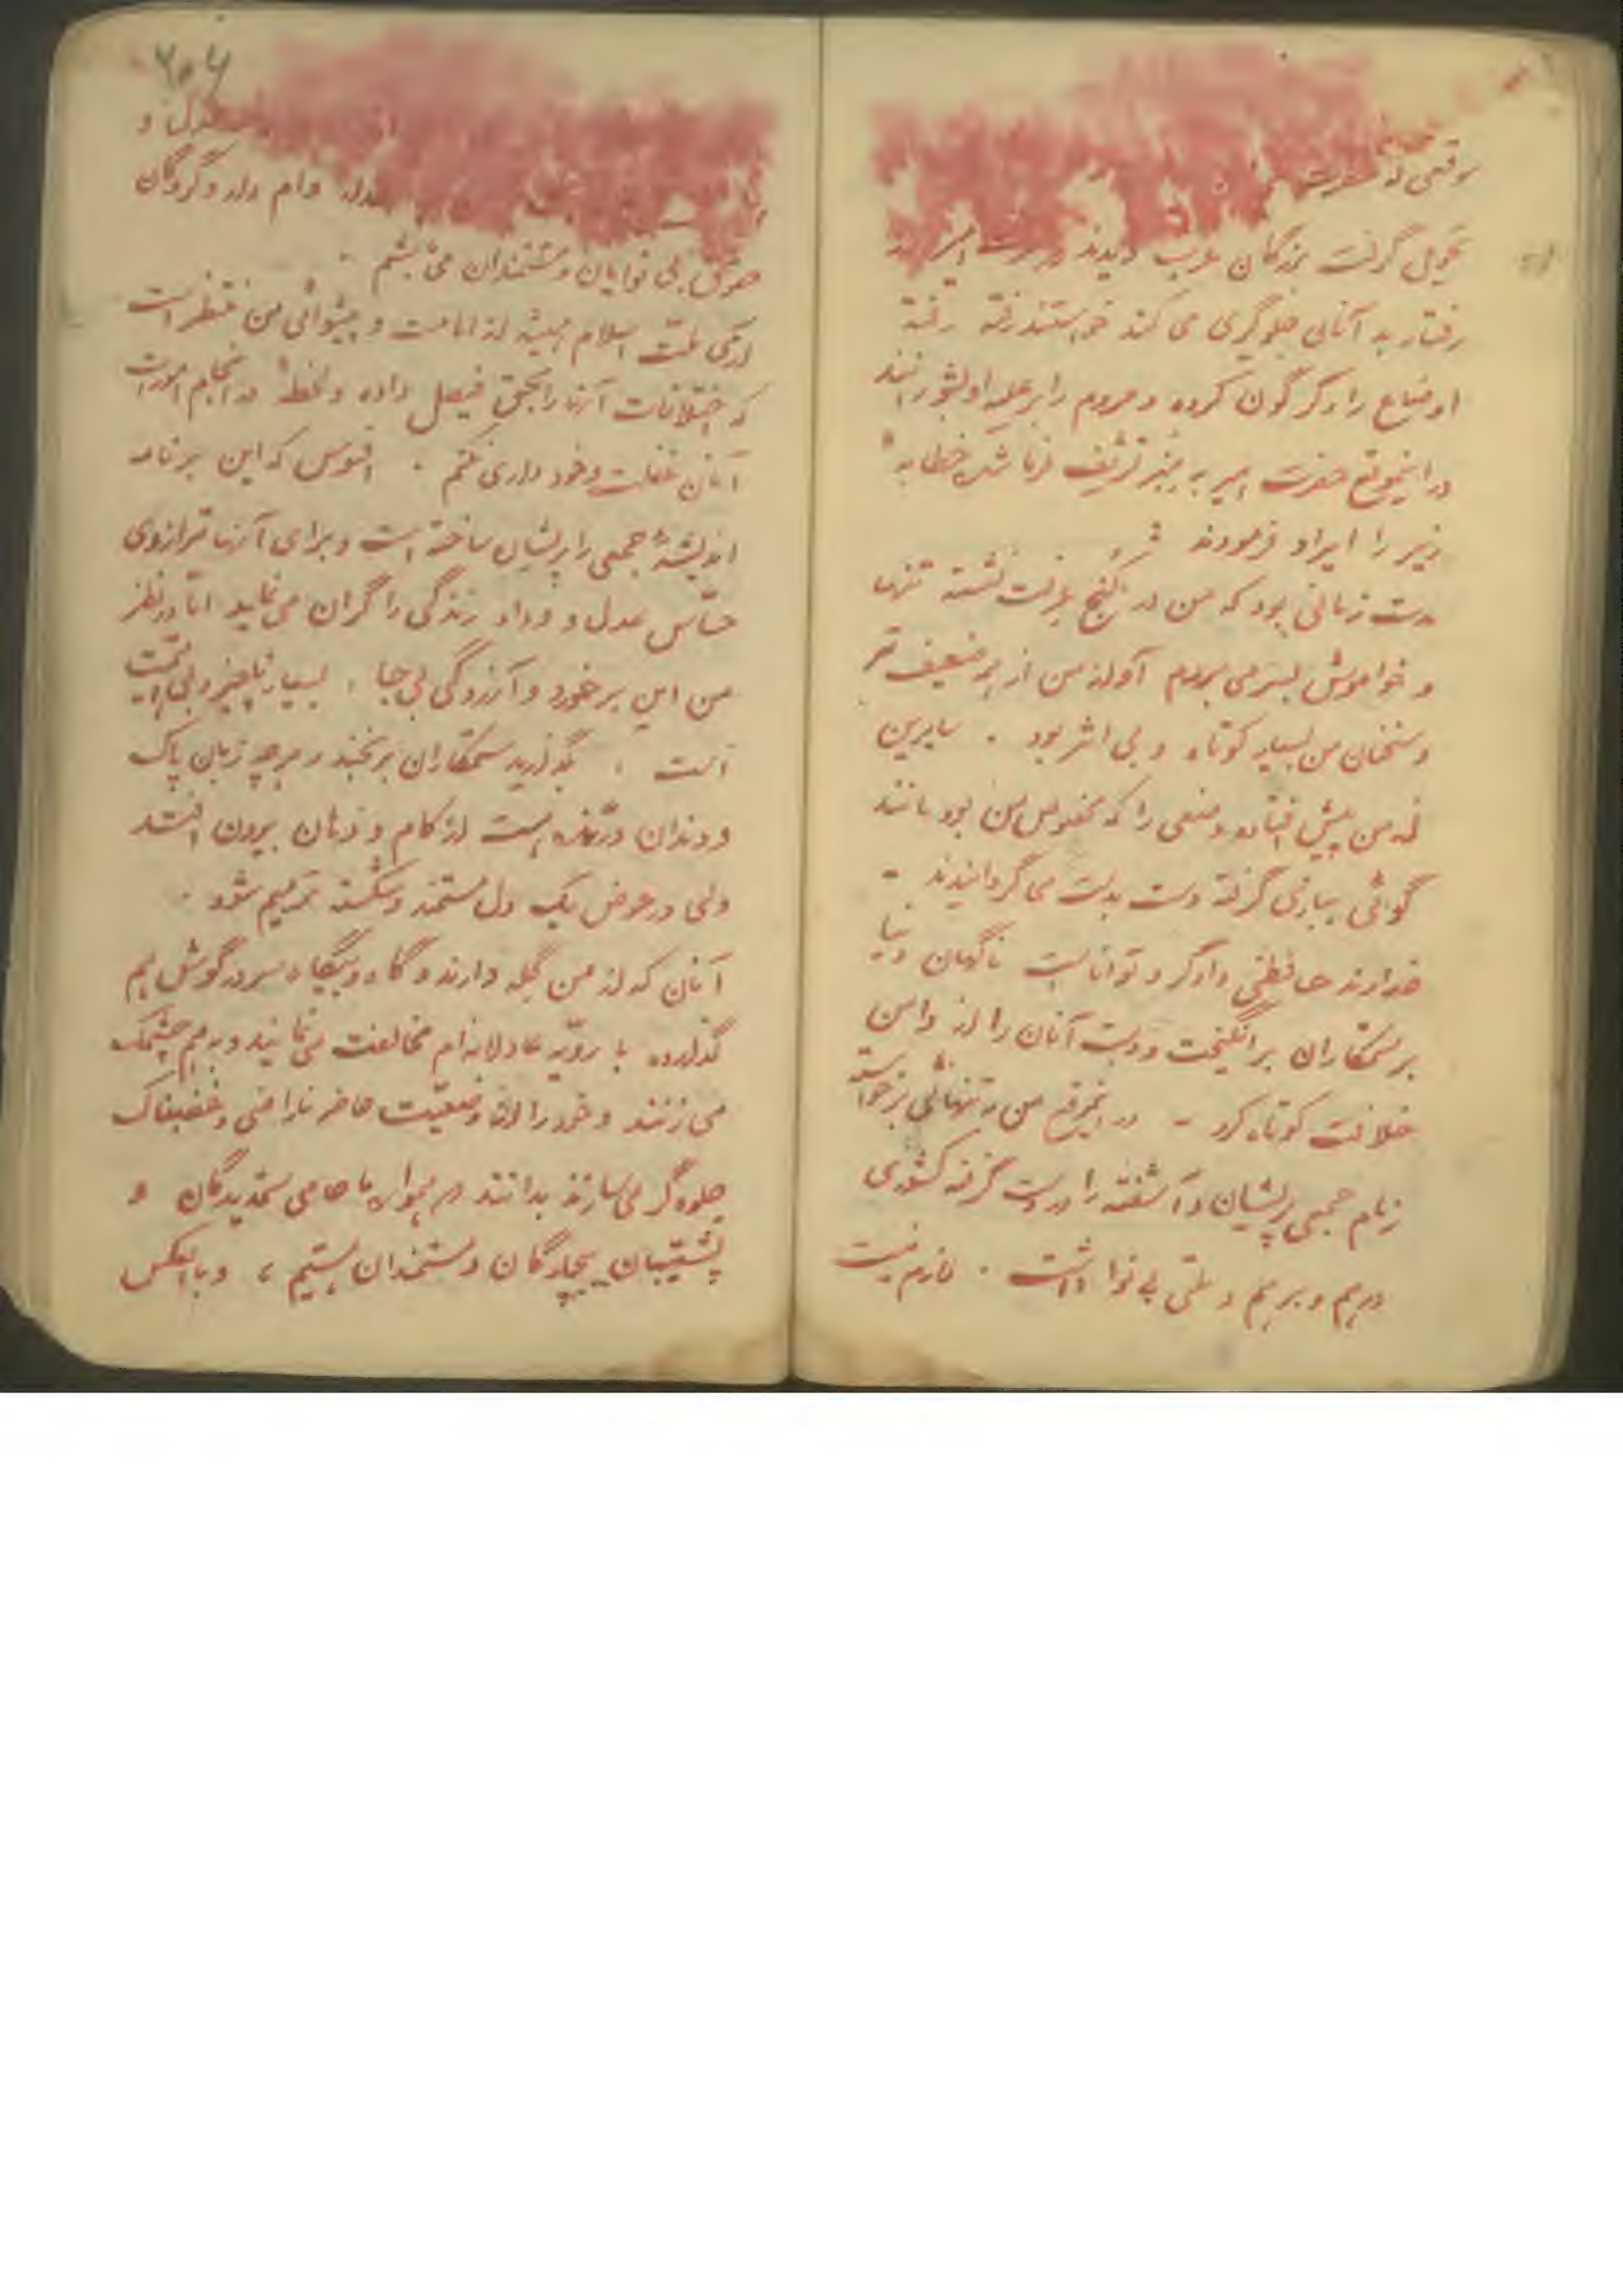 موقعی که حضرت
تحویل گرفت بزرگان عرب دیدند
رفتار به آنانی جلوگری می کند خواستند رفته رفته
اوضاع را دگرگون کرده و مردم را بر علیه او بشورانند
در اینموقع حضرت امیر به منبر تشریف فرما شدند خطابه
زیر را ایراد فرمودند
مدت زمانی بود که من در کنج عزلت نشسته تنها
و خواموش بسر می بردم آواز من از همه ضعیف تر
و سخنان من بسیار کوتاه و بی اثر بود . سایرین
از من پیش افتاده و منصبی را که مخصوص من بود مانند
گوئی ببازی گرفته دست بدست می گردانیدند -
خداوند حافظی دادگر و تواناست ناگهان دنیا
بر ستمکاران برانگیخت و دست آنان را از دامن
خلافت کوتاه کرد - در اینموقع من به تنهائی برخواسته
زمام جمعی پریشان و آشفته را در دست گرفته کشوری
درهم و برهم و ملتی بی نوا داشت . لازم نیست
۲۰۶
عدل و
وام دار و گروگان
حقوق بی نوایان و مستمندان می باشم .
آری ملت اسلام همیشه از امامت و پیشوائی من منتظر است
که اختلافات آنها را بحق فیصل داده و لحظهٔ در انجام امورات
آنان غفلت و خود داری نکنم . افسوس که این برنامه
اندیشهٔ جمعی را پریشان ساخته است و برای آنها ترازوی
حساس عدل و وداد زندگی را گران می نماید اما در نظر
من این برخورد و آزردگی بی جا ، بسیار ناچیز و بی اهمیت
است ، بگذارید ستمکاران برنجند و هرچه زبان پاک
و دندان درنده است از کام و دهان بیرون افتد
ولی در عوض یک دل مستمند و شکسته ترمیم شود .
آنان که از من گله دارند و گاه و بیگاه سر در گوش هم
گذارده با رویه عادلانه ام مخالفت می نمایند و بهم چشمک
می زنند و خود را از وضعیت حاضر ناراضی و غضبناک
جلوه گر می سازند بدانند که همواره ما حامی ستمدیدگان و
پشتیبان بیچارگان و مستمندان هستیم ، و بالعکس